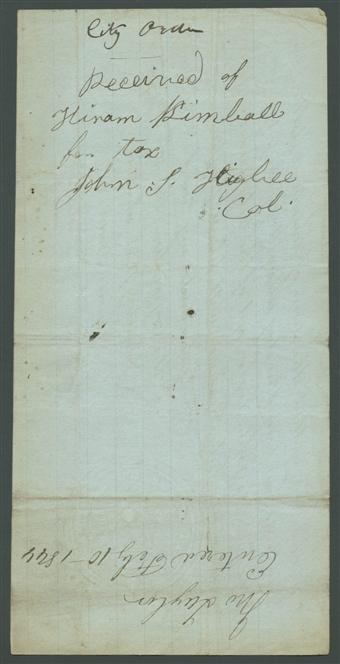 City Order
Received of
Hiram Kimball
for tax
John S. Higbee
Col.
Jno Taylor
Entered Feby 10– 1844